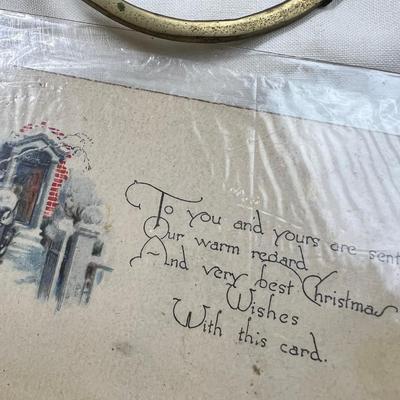 To you and yours are sent
Our warm regard
And very best Christmas
Wishes
With this card.